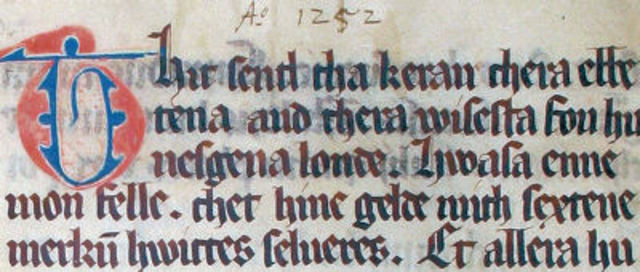 Aº 1252
Thit send tha keran thera
tena and thera wisesta fon hu
nesgena londe. Hwasa enne
mon felle. thet hine gelde mith sextene
merkū hwittes selueres. Et allera hu